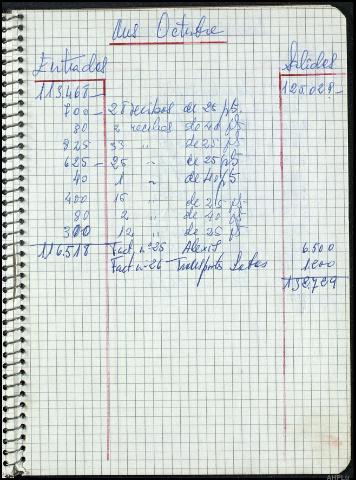 Mes Octubre
Entradas Salidas
113468 — 125029 —
700 — 28 recibos de 25 pts.
80 2 recibos de 40 pts
825 33 " de 25 pts
625 — 25 " de 25 pts
40 1 " de 40 pts
400 16 " de 25 pts
80 2 " de 40 pts
300 12 " de 25 pts
116.518 Fact. nº 25 Alexis 6.500
Fact nº 26 Transports 1200
132729